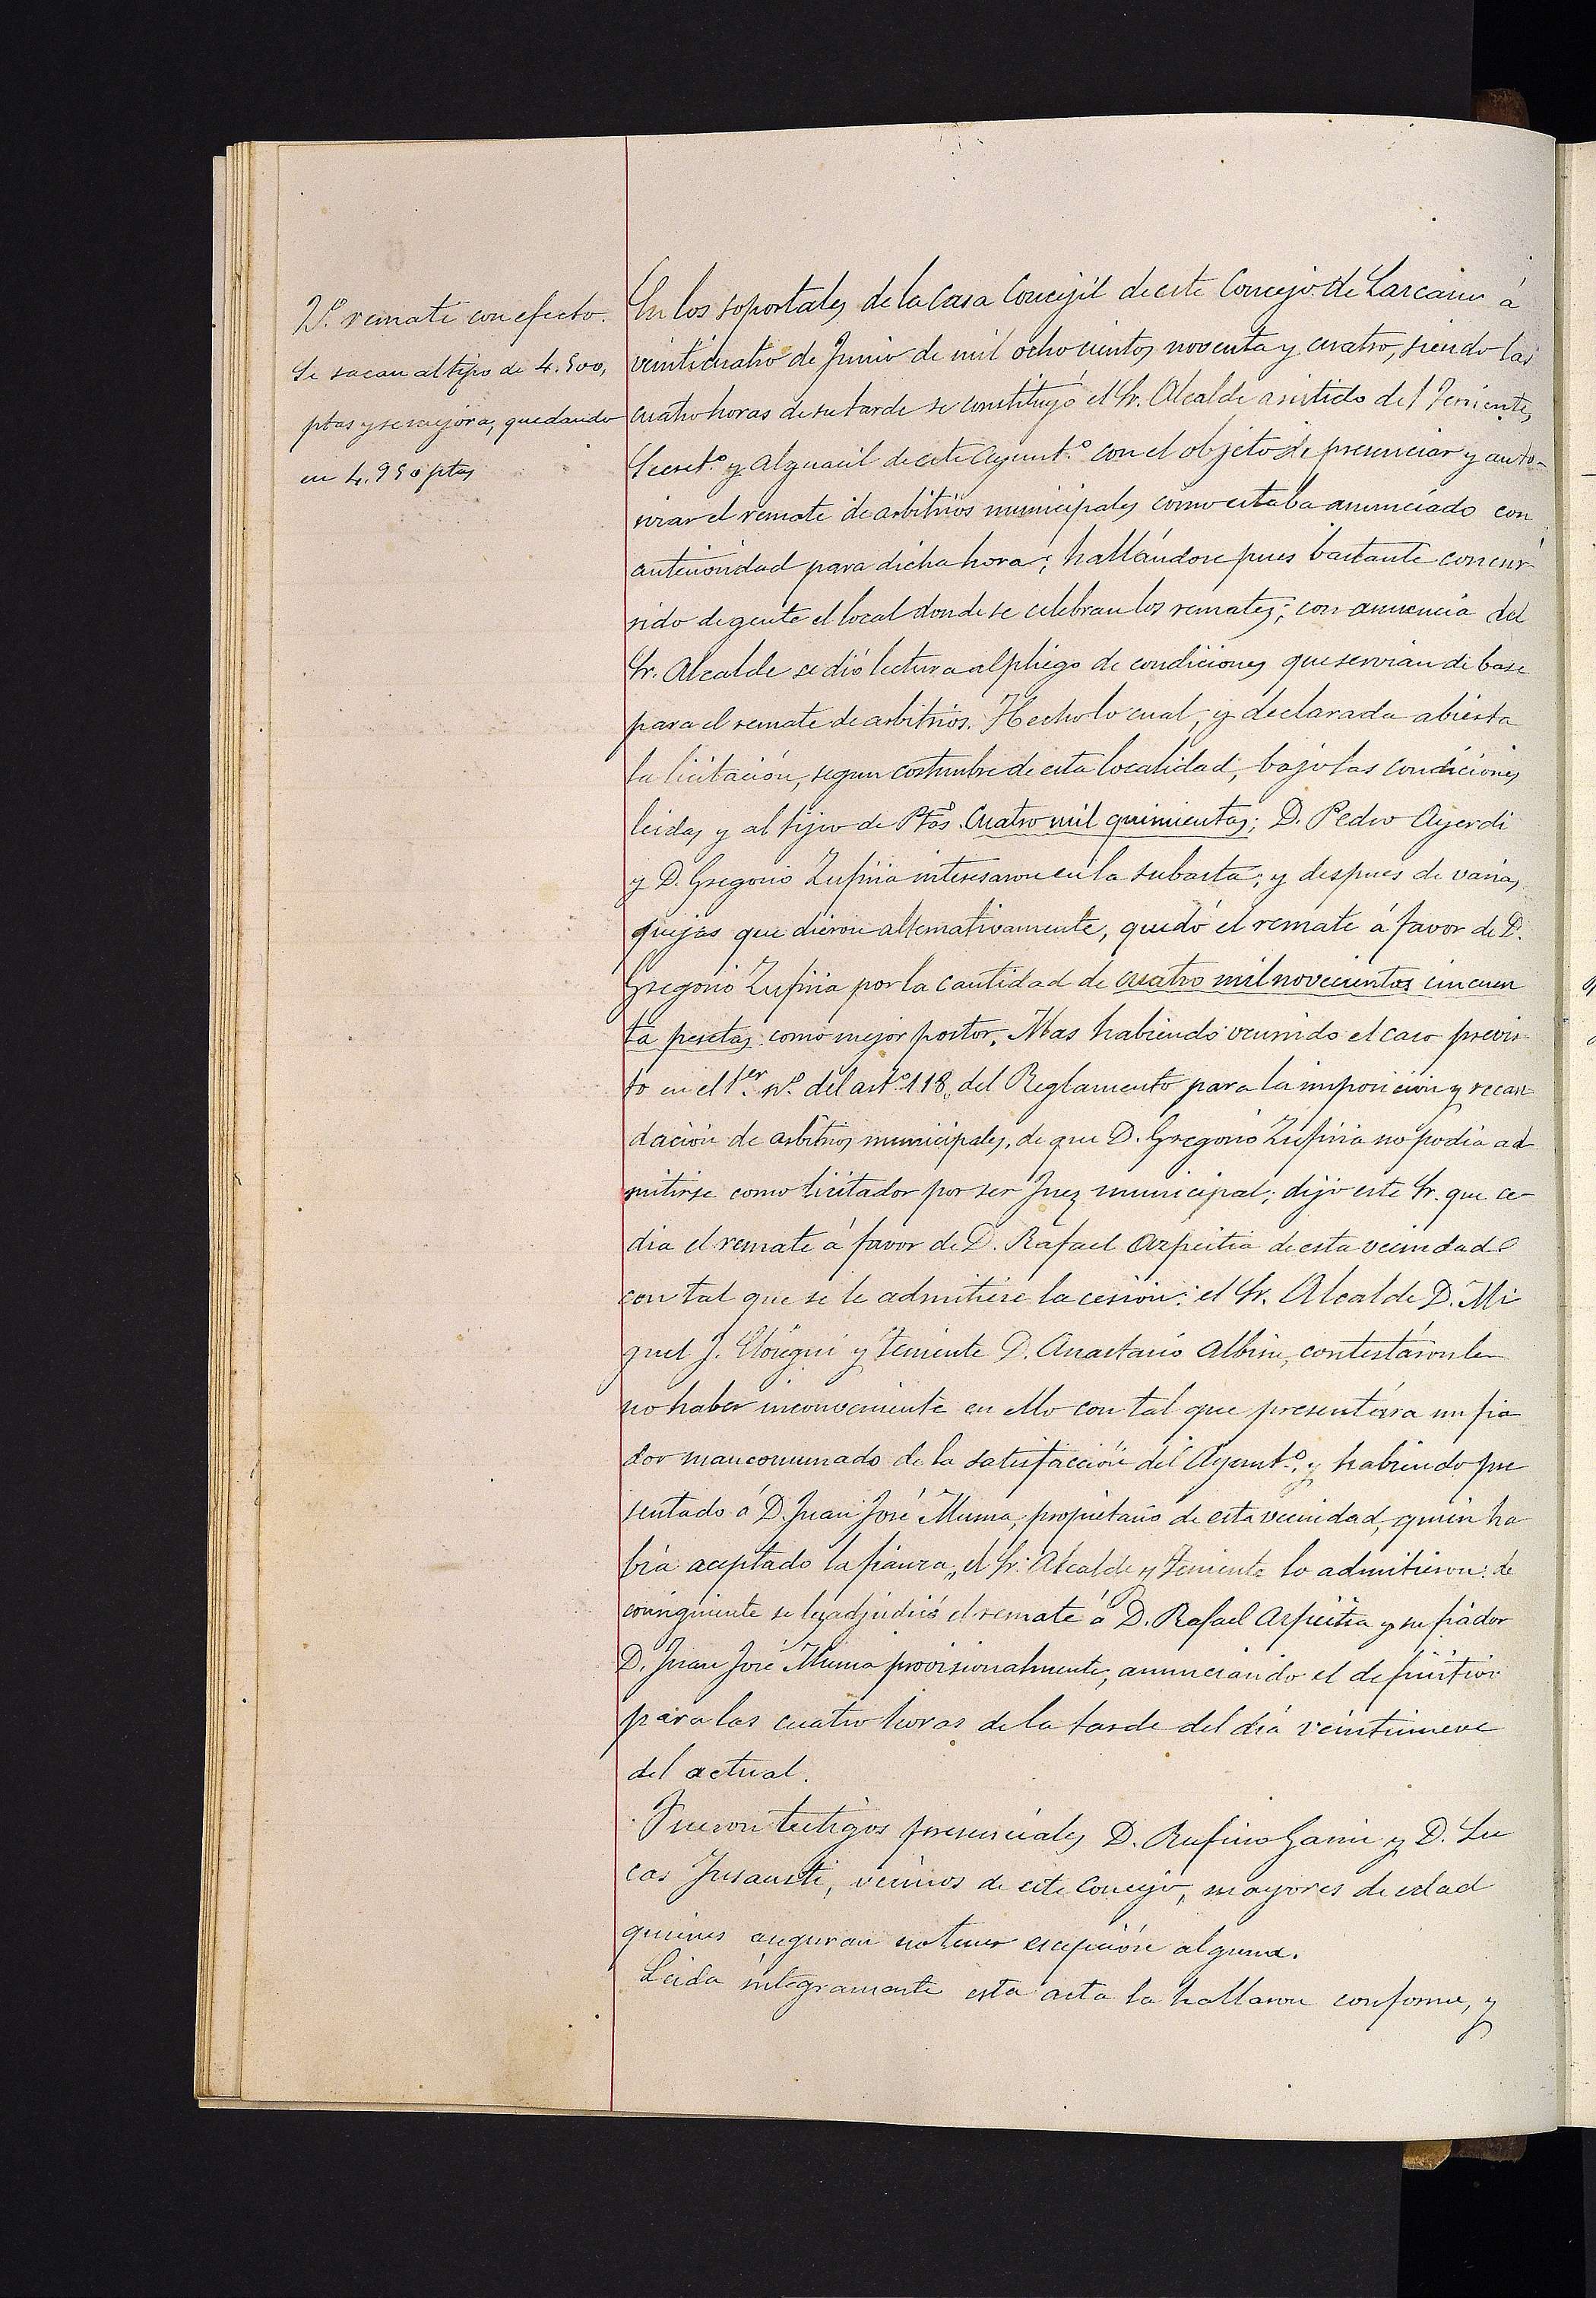 remate con efecto.
Se sacan al tipo de 4.500,
ptas y se mejora, quedando
en 4.950 ptas
En los soportales de la Casa Concejil de este Concejo de Larcaino á
veinticuatro de Junio de mil ochocientos noventa y cuatro, siendo las
cuatro horas de su tarde se constituyó el Sr. Alcalde asistido del Teniente,
Secret.º y Alguacil de este Ayunt.º con el objeto de presenciar y auto-
rizar el remate de arbitrios municipales como estaba anunciado con
anterioridad para dicha hora; hallándose pues bastante concur-
rido de gente el local donde se celebran los remates; con anuencia del
Sr. Alcalde se dió lectura al pliego de condiciones que servirán de base
para el remate de arbitrios. Hecho lo cual, y declarada abierta
la licitación, segun costumbre de esta localidad, bajo las condiciones
leidas y al tipo de Ptas. Cuatro mil quinientas; D. Pedro Ayerdi
y D. Gregorio Zufiria interesaron en la subasta; y despues de varias
pujas que dieron alternativamente, quedó el remate á favor de D.
Gregorio Zufiria por la cantidad de cuatro mil novecientos cincuen
ta pesetas como mejor postor. Mas habiendo ocurrido el caso previs-
to en el 1.er n.º del art.º 118 del Reglamento para la imposicion y recau
dación de arbitrios municipales, de que D. Gregorio Zufiria no podia ad
mitirse como licitador por ser Juez municipal; dijo este Sr. que ce-
dia el remate á favor de D. Rafael Azpeitia de esta vecindad
con tal que se le admitiese la cesión: el Sr. Alcalde D. Mi
guel J. Elóregui y Teniente D. Anastasio Albisu, contestáronle
no haber inconveniente en ello con tal que presentára un fia
dor mancomunado de la satisfacción del Ayunt.º, y habiendo pre
sentado á D. Juan José Muma, propietario de esta vecindad, quien ha
bía aceptado la fianza, el Sr. Alcalde y Teniente lo admitieron: de
consiguiente se les adjudicó el remate á D. Rafael Azpeitia y su fiador
D. Juan José Muma provisionalmente, anunciando el definitivo
para las cuatro horas de la tarde del día veintinueve
del actual.
Fueron testigos presenciales D. Rufino Garin y D. Lu
cas Insausti, vecinos de este Concejo, mayores de edad
quienes aseguran no tener escepción alguna.
Leida íntegramente esta acta la hallaron conforme, y